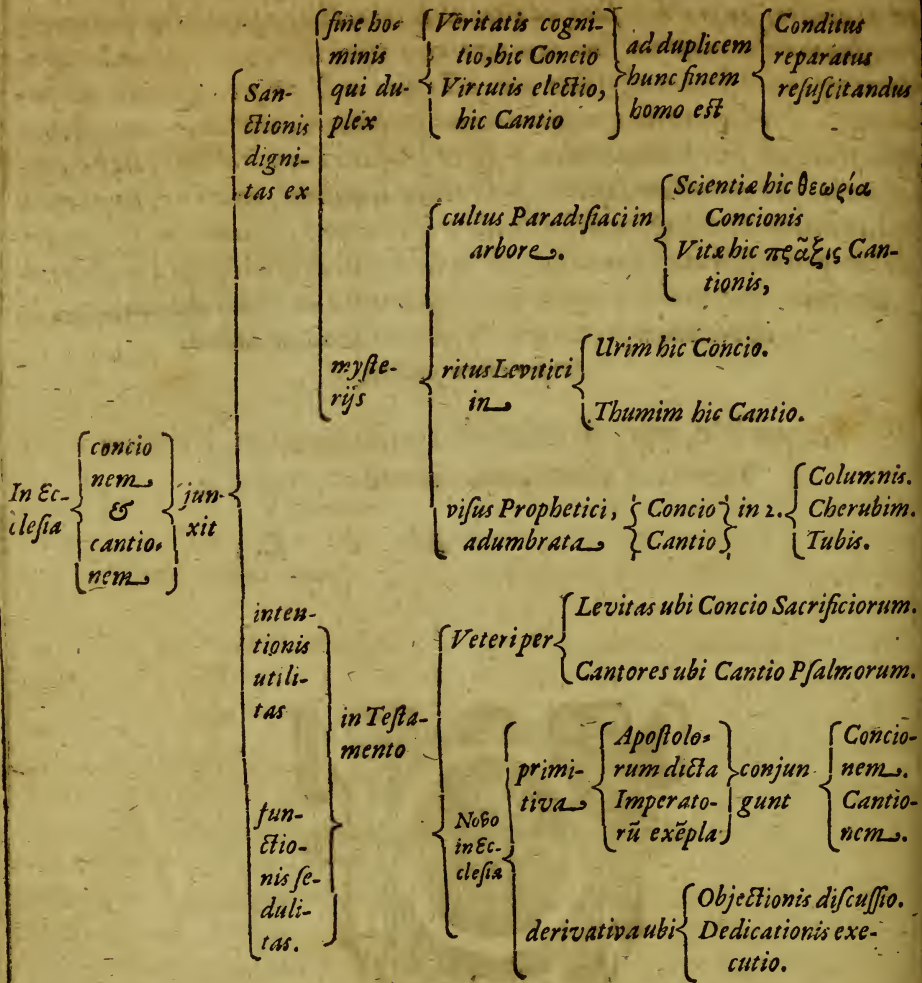 In Ec-
clesia
concio
nem
&
cantio-
nem
jun-
xit
San-
ctionis
digni-
tas ex
fine ho-
minis
qui du-
plex
Veritatis cogni-
tio, hic Concio
Virtutis electio,
hic Cantio
ad duplicem
hunc finem
homo est
Conditus
reparatus
resuscitandus
myste-
rijs
cultus Paradisiaci in
arbore.
Scientiæ hic θεωρία
Concionis
Vitæ hic πρᾶξις Can-
tionis,
ritus Levitici
in
Urim hic Concio.
Thumim hic Cantio.
visus Prophetici,
adumbrata
Concio
Cantio
in 2.
Columnis.
Cherubim.
Tubis.
inten-
tionis
utili-
tas
fun-
ctio-
nis se-
duli-
tas.
in Testa-
mento
Veteri per
Levitas ubi Concio Sacrificiorum.
Cantores ubi Cantio Psalmorum.
Novo
in Ec-
clesia
primi-
tiva
Apostolo-
rum dicta
Imperato-
rũ exẽpla
conjun
gunt
Concio-
nem.
Cantio-
nem.
derivativa ubi
Objectionis discussio.
Dedicationis exe-
cutio.